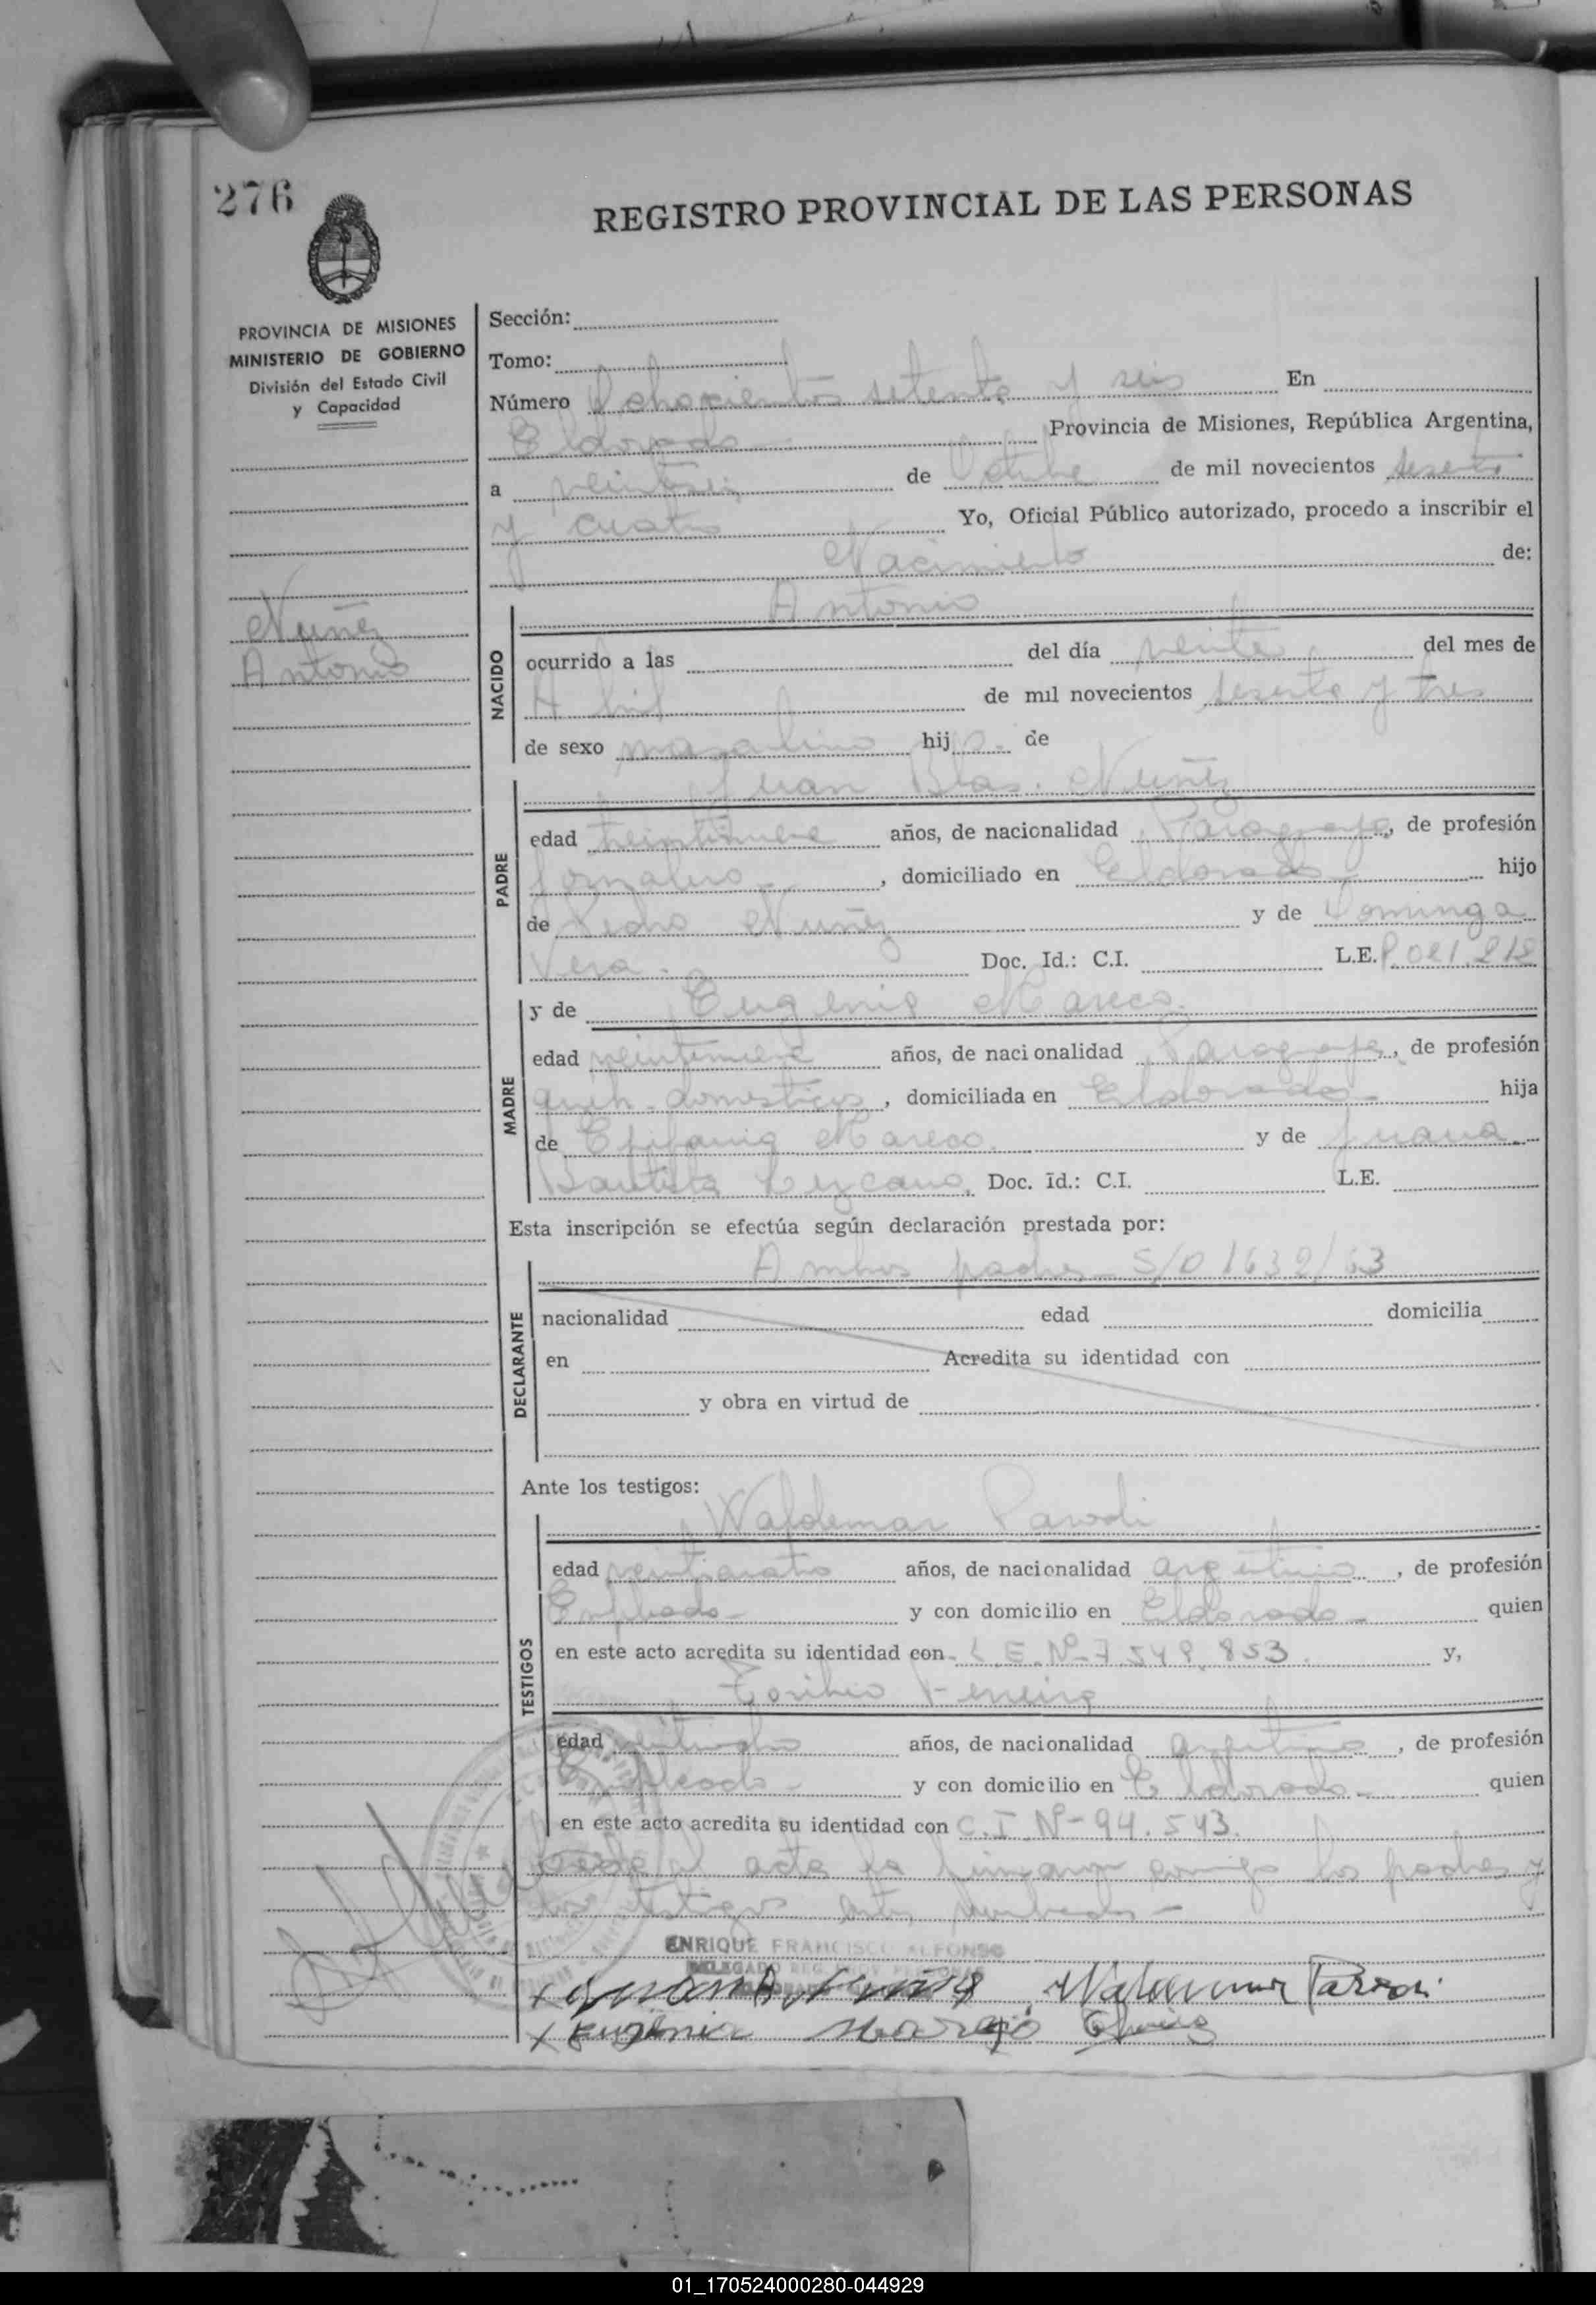 276
REGISTRO PROVINCIAL DE LAS PERSONAS
PROVINCIA DE MISIONES
MINISTERIO DE GOBIERNO
División del Estado Civil
y Capacidad
Nuñez
Antonio
Sección:
Tomo:
Número Ochocientos setenta y seis En
Eldorado Provincia de Misiones, República Argentina,
a veintiseis de Octubre de mil novecientos sesenta
y cuatro Yo, Oficial Público autorizado, procedo a inscribir el
Nacimiento de:
NACIDO
Antonio
ocurrido a las del día veinte del mes de
Abril de mil novecientos sesenta y tres
de sexo masculino hijo de
PADRE
Juan Blas Nuñez
edad treintinueve años, de nacionalidad Paraguaya, de profesión
jornalero, domiciliado en Eldorado hijo
de Pedro Nuñez y de Dominga
Vera. Doc. Id.: C.I. L.E.
MADRE
y de Eugenia Mareco.
edad veintinueve años, de nacionalidad Paraguaya, de profesión
queh. domesticos, domiciliada en Eldorado hija
de Epifania Mareco. y de Juana
Bautista Lezcano. Doc. Id.: C.I. L.E.
Esta inscripción se efectúa según declaración prestada por:
DECLARANTE
Ambos padres S/D 1632/63
nacionalidad edad domicilia
en Acredita su identidad con
y obra en virtud de
Ante los testigos:
TESTIGOS
Waldemar Parodi
edad veinticuatro años, de nacionalidad argentino, de profesión
Empleado y con domicilio en Eldorado quien
en este acto acredita su identidad con L.E. Nº 7.549.853. y,
Toribio Ferreira
edad años, de nacionalidad Argentino, de profesión
Empleado y con domicilio en Eldorado quien
en este acto acredita su identidad con C.I. Nº 94.543.
acta la firman conmigo los padres y
los testigos antes nombrados
ENRIQUE FRANCISCO ALFONSO
DELEGADO REG. PROV. PERSONAS
01_170524000280-044929